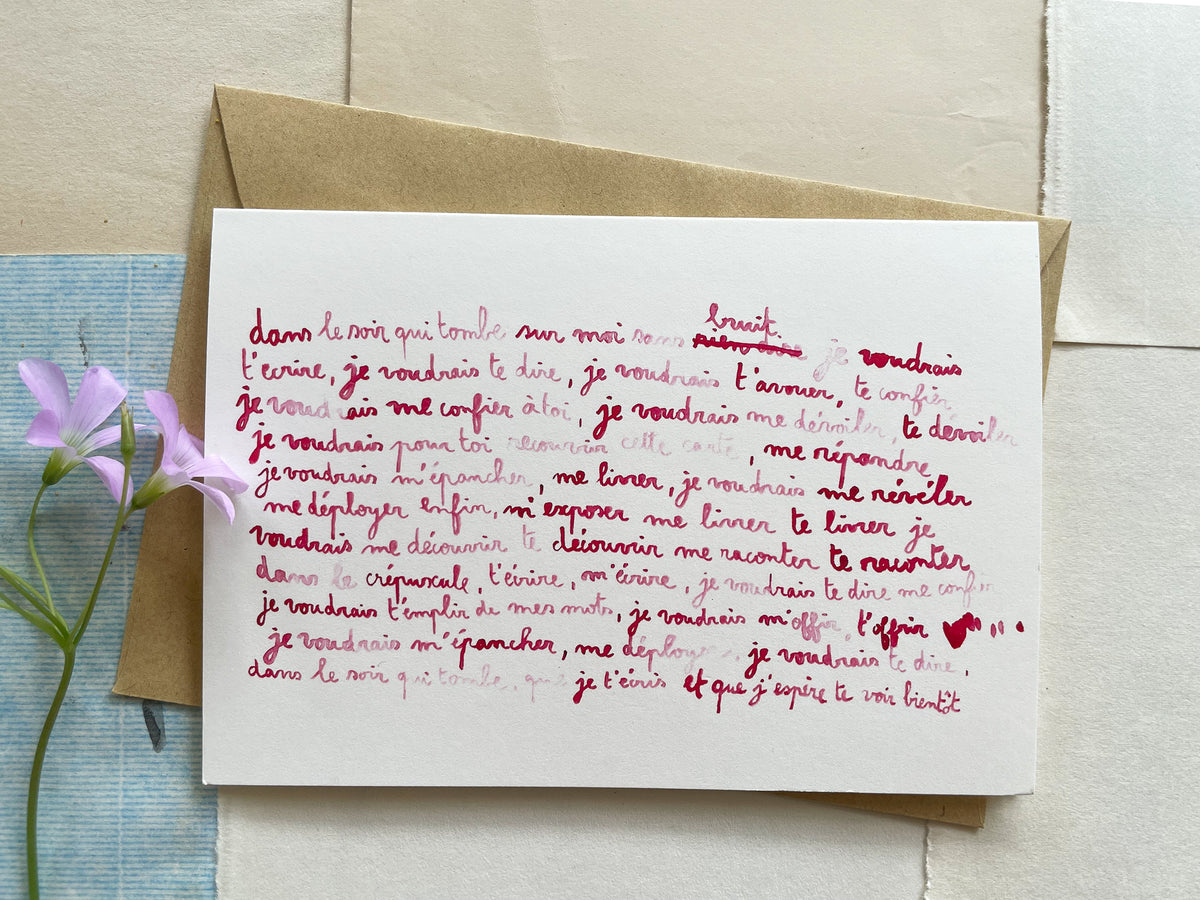 bruit
dans le soir qui tombe sur moi sans rien dire je voudrais
t'écrire, je voudrais te dire, je voudrais t'avouer, te confier
je voudrais me confier à toi, je voudrais me dévoiler, te dévoiler
je voudrais pour toi recouvrir cette carte, me répandre,
je voudrais m'épancher, me livrer, je voudrais me révéler
me déployer enfin, m'exposer me livrer te livrer je
voudrais me découvrir te découvrir me raconter te raconter,
dans le crépuscule, t'écrire, m'écrire, je voudrais te dire me confier
je voudrais t'emplir de mes mots, je voudrais m'offrir, t'offrir
je voudrais m'épancher, me déployer, je voudrais te dire,
dans le soir qui tombe, que je t'écris et que j'espère te voir bientôt